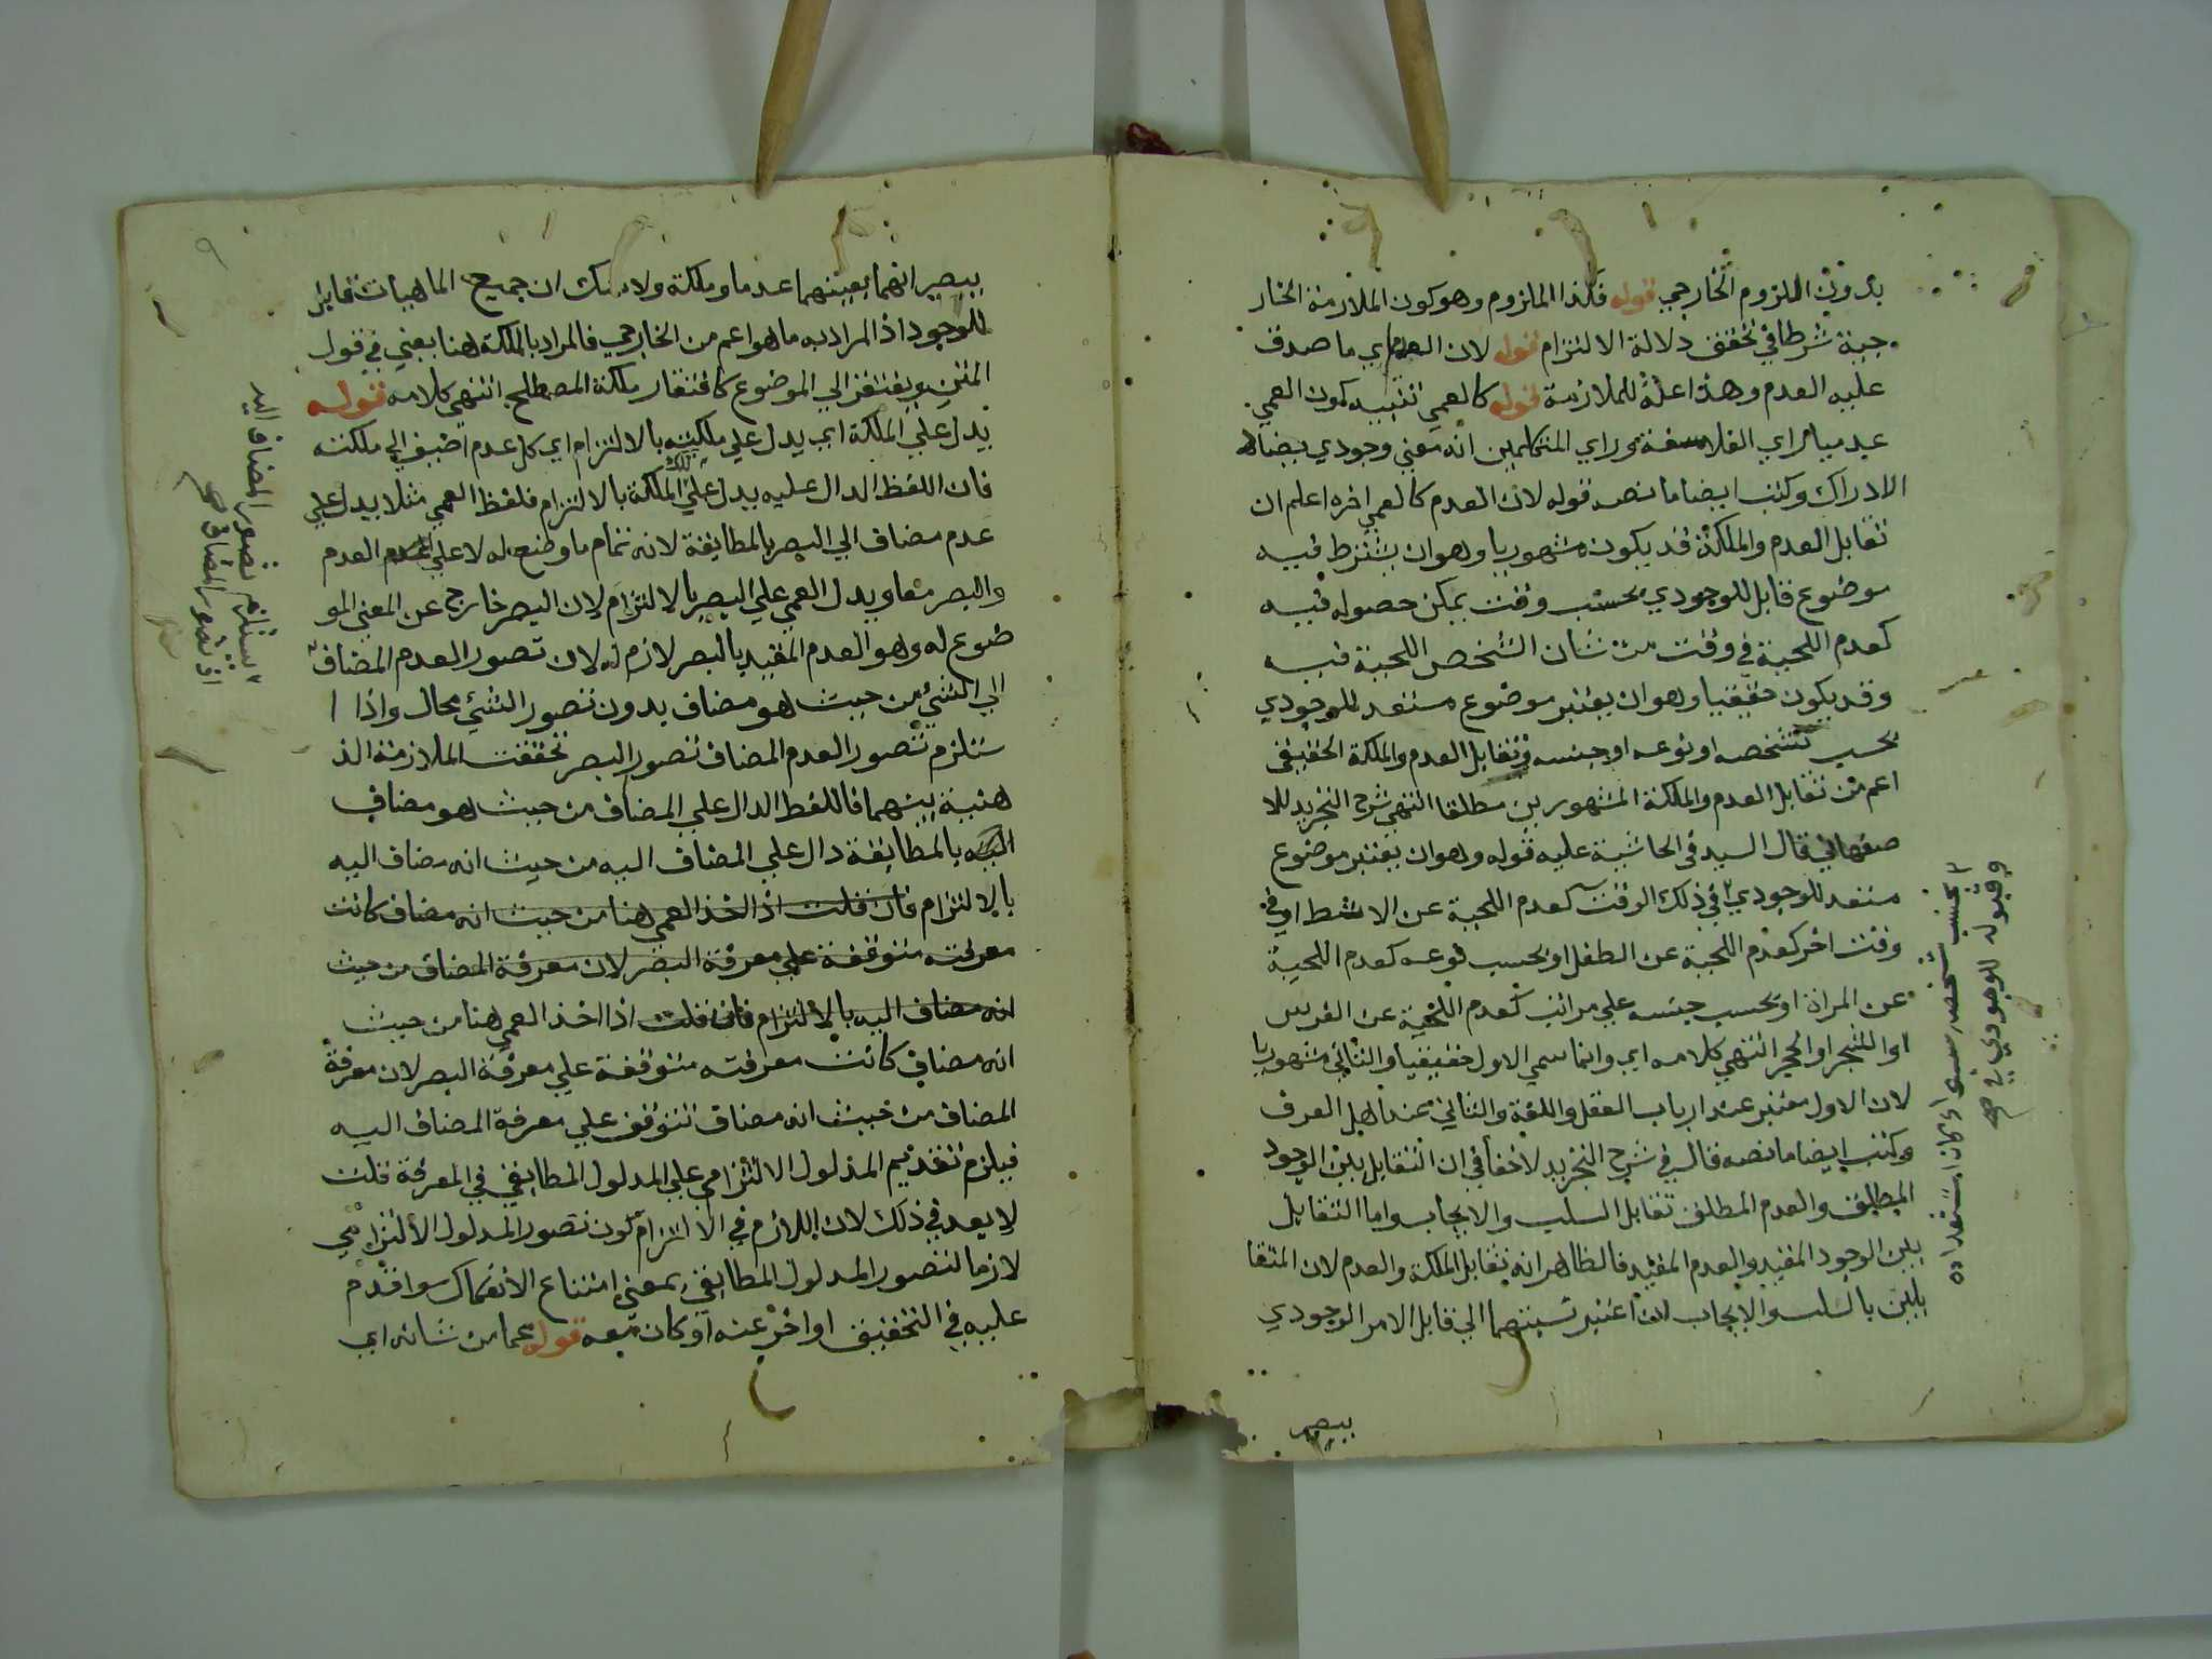 بدون الملزوم الخارجي قوله فكذا الملزوم وهو كون الملازمة الخار
جية شرطا في تحقق دلالة الالتزام قوله لان العدم اي ما صدق
عليه العدم وهذا علة للملازمة قوله كالعمي تنبيه كون العمي
عدميا راي الفلاسفة وراي المتكلمين انه معني وجودي يضاد
الادراك وكتب ايضا ما نصه قوله لان العدم كالعمي اخره اعلم ان
تقابل العدم والملكة قد يكون مشهوريا وهو ان يشترط فيه
موضوع قابل للوجودي بحسب وقت يمكن حصوله فيه
كعدم اللحية في وقت من شان الشخص اللحية فيه
وقد يكون حقيقيا وهو ان يعتبر موضوع مستعد للوجودي
بحسب تشخصه او نوعه او جنسه وتقابل العدم والملكة الحقيقي
اعم من تقابل العدم والملكة المشهورين مطلقا انتهي شرح التجريد للا
صفهاني قال السيد في الحاشية عليه قوله وهو ان يعتبر موضوع
مستعد للوجودي في ذلك الوقت كعدم اللحية عن الاشط او في
وقت اخر كعدم اللحية عن الطفل او بحسب نوعه كعدم اللحية
عن المراة او بحسب جنسه علي مراتب كعدم اللحية عن الفرس
او الشجر او الحجر انتهي كلامه اي وانما سمي الاول حقيقيا والثاني مشهوريا
لان الاول معتبر عند ارباب العقل واللغة والثاني عند اهل العرف
وكتب ايضا ما نصه قال في شرح التجريد لا خفا في ان التقابل بين الوجود
المطلق والعدم المطلق تقابل السلب والايجاب واما التقابل
بين الوجود المقيد والعدم المقيد فالظاهر انه تقابل الملكة والعدم لان المتقا
بلين بالسلب والايجاب ان اعتبر نسبتهما الي قابل الامر الوجودي
يبصير
بحسب شخصه سوا كان استعداده
وقبوله للوجودي في صح
يبصير انهما بعينهما عدما وملكة ولا شك ان جميع الماهيات قابل
للوجود اذ المراد به ما هو اعم من الخارجي فالمراد بالملكة هنا يعني في قول
المتن ويفتقر الي الموضوع كافتقار ملكة المصطلح انتهي كلامه قوله
يدل علي الملكة اي يدل علي ملكته بالالتزام اي كل عدم اضيف الي ملكته
فان اللفظ الدال عليه يدل علي تلك الملكة بالالتزام فلفظ العمي مثلا يدل علي
عدم مضاف الي البصر بالمطابقة لانه تمام ما وضع له لا علي العدم
والبصر معا ويدل العمي علي البصر بالالتزام لان البصر خارج عن المعني المو
ضوع له وهو العدم المقيد بالبصر لازم له لان تصور العدم المضاف
الي الشي من حيث هو مضاف بدون تصور الشي محال واذا ا
ستلزم تصور العدم المضاف تصور البصر تحققت الملازمة الذ
هنية بينهما فاللفظ الدال علي المضاف من حيث هو مضاف
اليه بالمطابقة دال علي المضاف اليه من حيث انه مضاف اليه
بالالتزام فان قلت اذا اخذ العمي هنا من حيث انه مضاف كانت
معرفته متوقفة علي معرفة البصر لان معرفة المضاف من حيث
انه مضاف اليه بالالتزام فان قلت اذا اخذ العمي هنا من حيث
انه مضاف كانت معرفته متوقفة علي معرفة البصر لان معرفة
المضاف من حيث انه مضاف تتوقف علي معرفة المضاف اليه
فيلزم تقديم المدلول الالتزامي علي المدلول المطابقي في المعرفة قلت
لا بعد في ذلك لان اللازم في الالتزام كون تصور المدلول الالتزامي
لازما لتصور المدلول المطابقي بمعني امتناع الانفكاك سوا قدم
عليه في التحقيق او اخر عنه او كان معه قوله عما من شانه اي
يستلزم تصور المضاف اليه
اذ تصور المضاف صح
٩